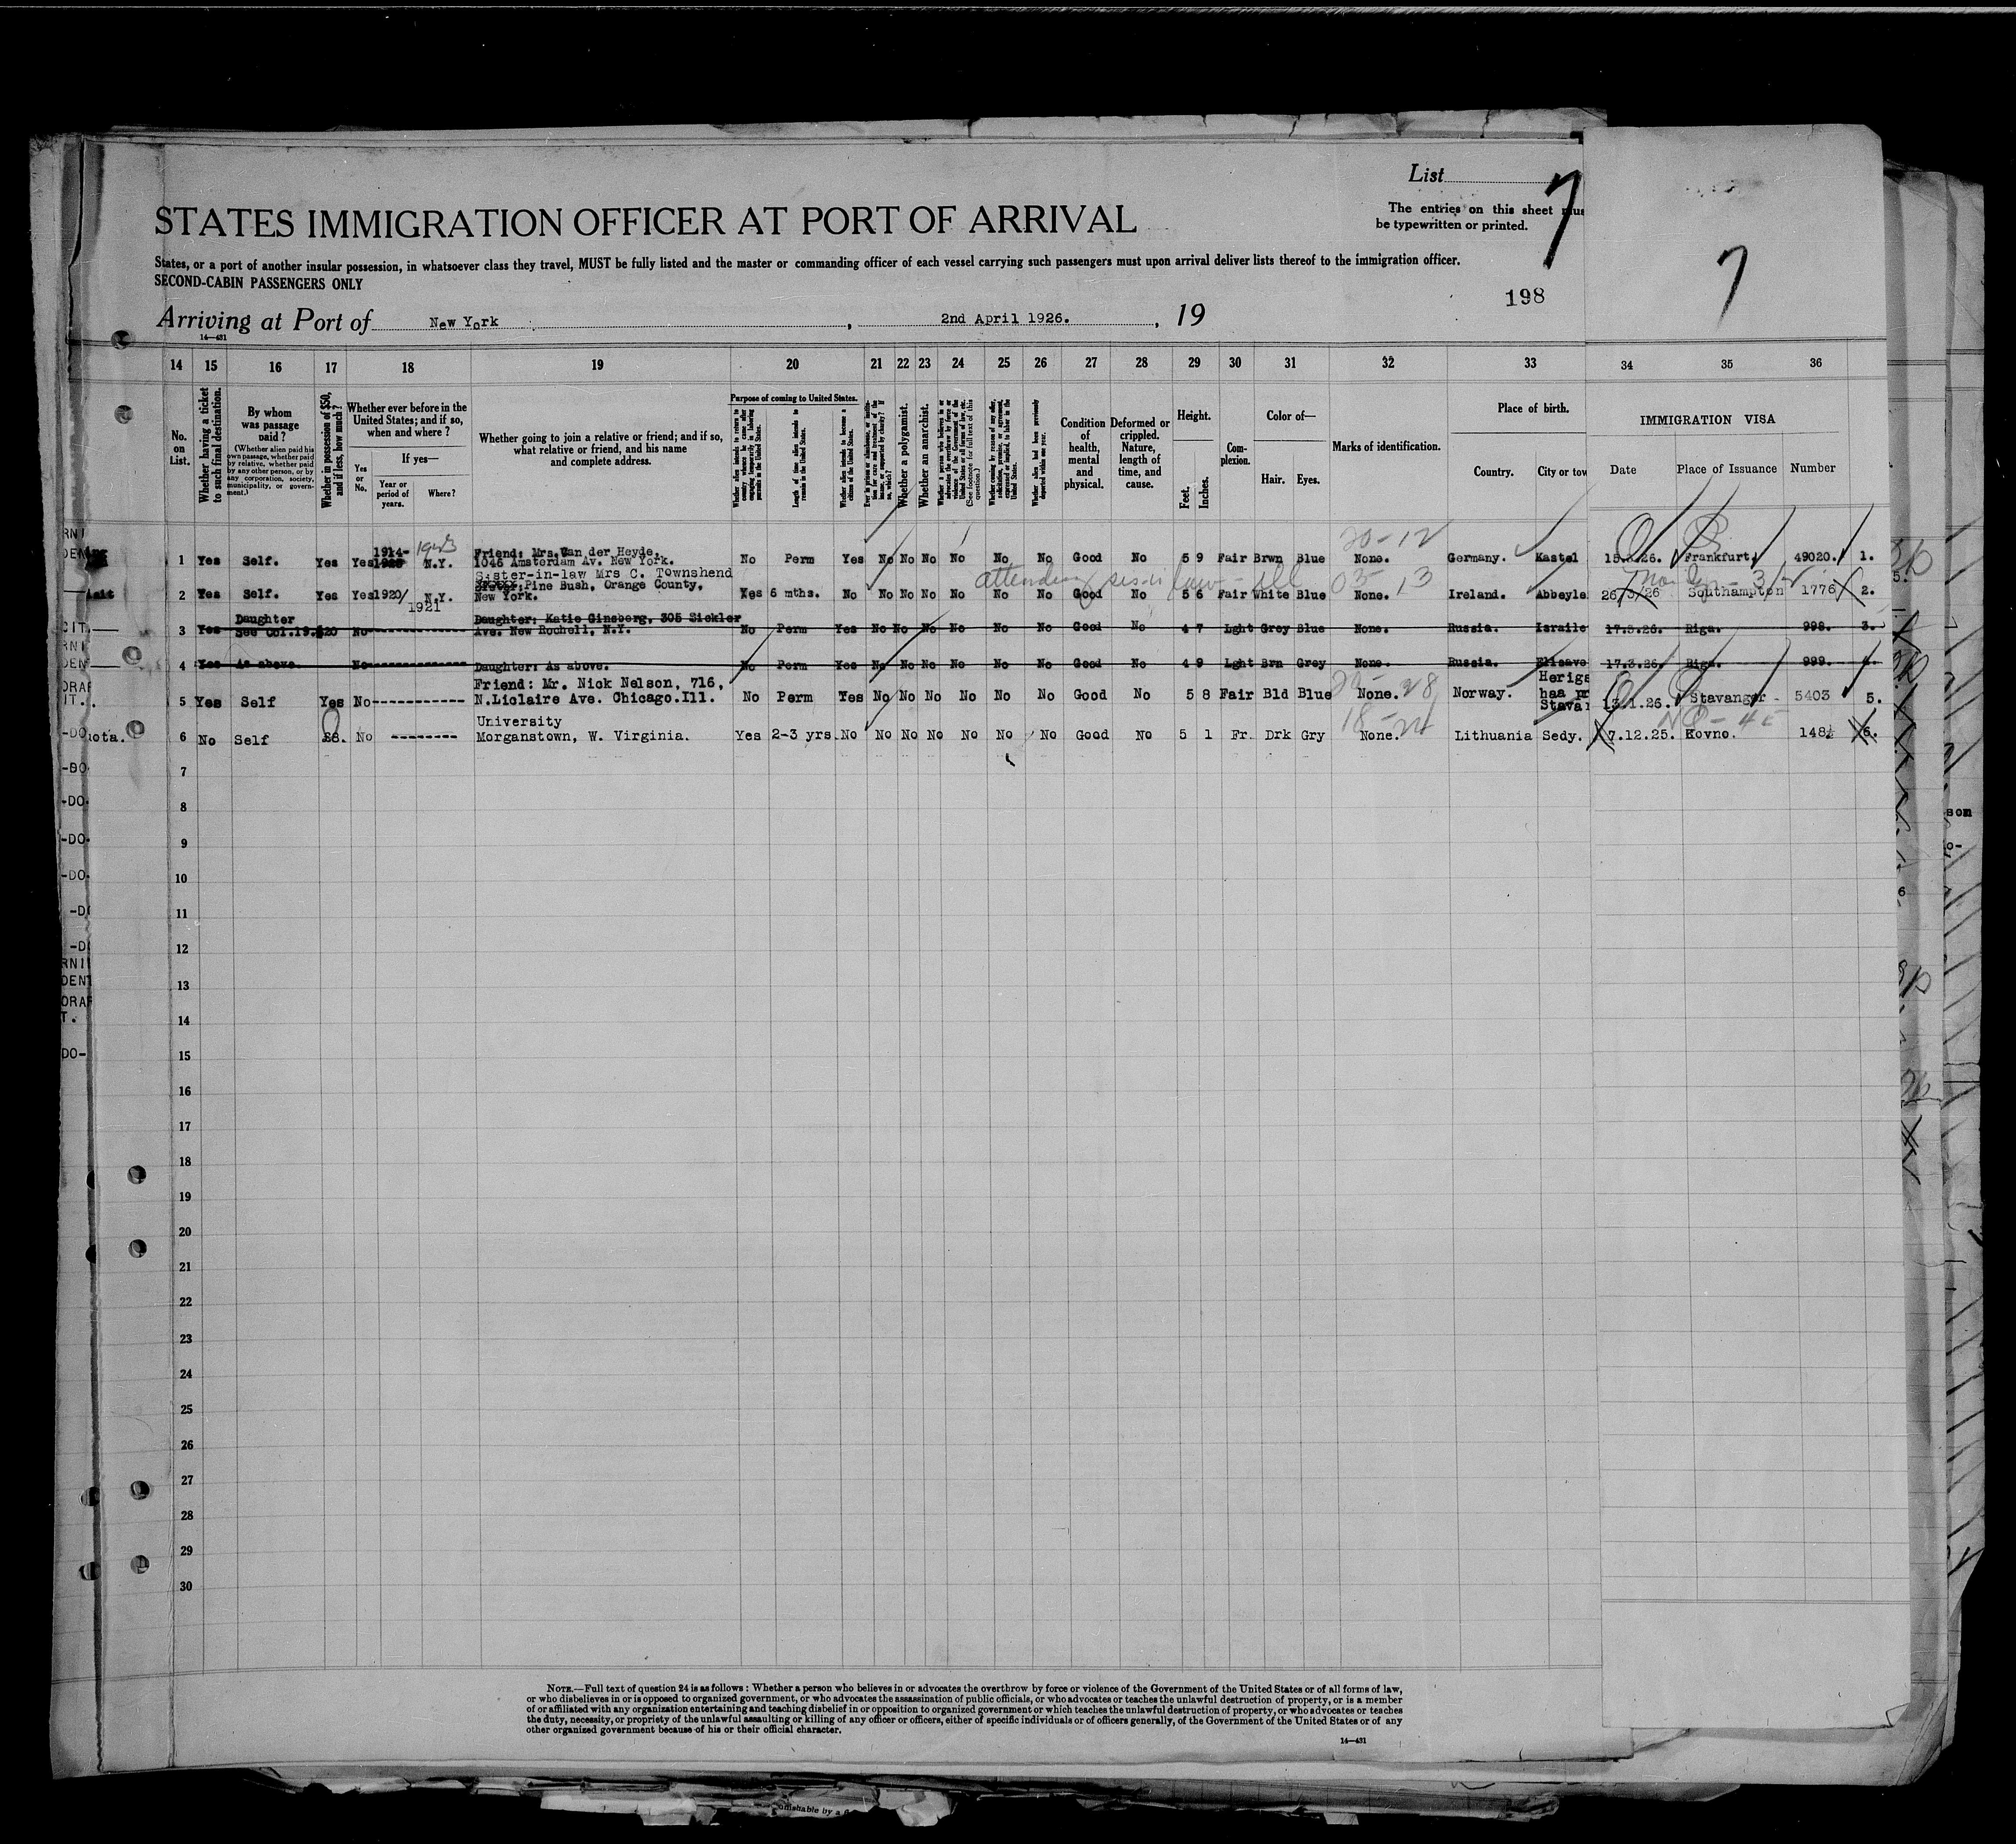 List 7
The entries on this sheet mus
be typewritten or printed.
STATES IMMIGRATION OFFICER AT PORT OF ARRIVAL
7
States, or a port of another insular possession, in whatsoever class they travel, MUST be fully listed and the master or commanding officer of each vessel carrying such passengers must upon arrival deliver lists thereof to the immigration officer.
SECOND-CABIN PASSENGERS ONLY
198
Arriving at Port of New York, 2nd April 1926., 19
14—431
14 15 16 17 18 19 20 21 22 23 24 25 26 27 28 29 30 31 32 33 34 35 36
No. on List.
Whether having a ticket to such final destination.
By whom was passage paid?
(Whether alien paid his own passage, whether paid by relative, whether paid by any other person, or by any corporation, society, municipality, or government.)
Whether in possession of $50, and if less, how much?
Whether ever before in the United States; and if so, when and where?
Yes or No.
If yes—
Year or period of years.
Where?
Whether going to join a relative or friend; and if so, what relative or friend, and his name and complete address.
Purpose of coming to United States.
Whether alien intends to return to country whence he came after engaging temporarily in laboring pursuits in the United States.
Length of time alien intends to remain in the United States.
Whether alien intends to become a citizen of the United States.
Whether a polygamist.
Whether an anarchist.
(See footnote for full text of this question.)
Whether alien had been previously deported within one year.
Condition of health, mental and physical.
Deformed or crippled. Nature, length of time, and cause.
Height.
Feet. Inches.
Complexion.
Color of—
Hair. Eyes.
Marks of identification.
Place of birth.
Country. City or tow
IMMIGRATION VISA
Date Place of Issuance Number
20-12
1 Yes Self. Yes Yes 1914- 1923 N.Y. Friend: Mrs. Van der Heyde, 1046 Amsterdam Av. New York. No Perm Yes No No No No No No Good No 5 9 Fair Brwn Blue None. Germany. Kastel 15.3.26. Frankfurt. 49020. 1.
attending sis-in law - ill 03- 13
2 Yes Self. Yes Yes 1920/1921 N.Y. Sister-in-law Mrs C. Townshend Pine Bush, Orange County, New York. Yes 6 mths. No No No No No No No Good No 5 6 Fair White Blue None. Ireland. Abbeyle 26/3/26 Southampton 1776 2.
3 Yes Daughter See Col.19. $20 No Daughter: Katie Ginsberg, 305 Sickler Ave. New Rochell, N.Y. No Perm Yes No No No No No No Good No 4 7 Lght Grey Blue None. Russia. Israile 17.3.26. Riga. 998. 3.
4 Yes As above. No Daughter: As above. No Perm Yes No No No No No No Good No 4 9 Lght Brn Grey None. Russia. Elisave 17.3.26. Riga. 999. 4.
5 Yes Self Yes No Friend: Mr. Nick Nelson, 716, N.Liclaire Ave. Chicago.Ill. No Perm Yes No No No No No No Good No 5 8 Fair Bld Blue None. Norway. Herigs haa pr Stavan 13.1.26. Stavanger 5403 5.
18-24
6 No Self £8. No University Morganstown, W. Virginia. Yes 2-3 yrs. No No No No No No No Good No 5 1 Fr. Drk Gry None. Lithuania Sedy. 7.12.25. Kovno. 148½ 6.
7
8
9
10
11
12
13
14
15
16
17
18
19
20
21
22
23
24
25
26
27
28
29
30
NOTE.—Full text of question 24 is as follows: Whether a person who believes in or advocates the overthrow by force or violence of the Government of the United States or of all forms of law,
or who disbelieves in or is opposed to organized government, or who advocates the assassination of public officials, or who advocates or teaches the unlawful destruction of property, or is a member
of or affiliated with any organization entertaining and teaching disbelief in or opposition to organized government or which teaches the unlawful destruction of property, or who advocates or teaches
the duty, necessity, or propriety of the unlawful assaulting or killing of any officer or officers, either of specific individuals or of officers generally, of the Government of the United States or of any
other organized government because of his or their official character.
14—431